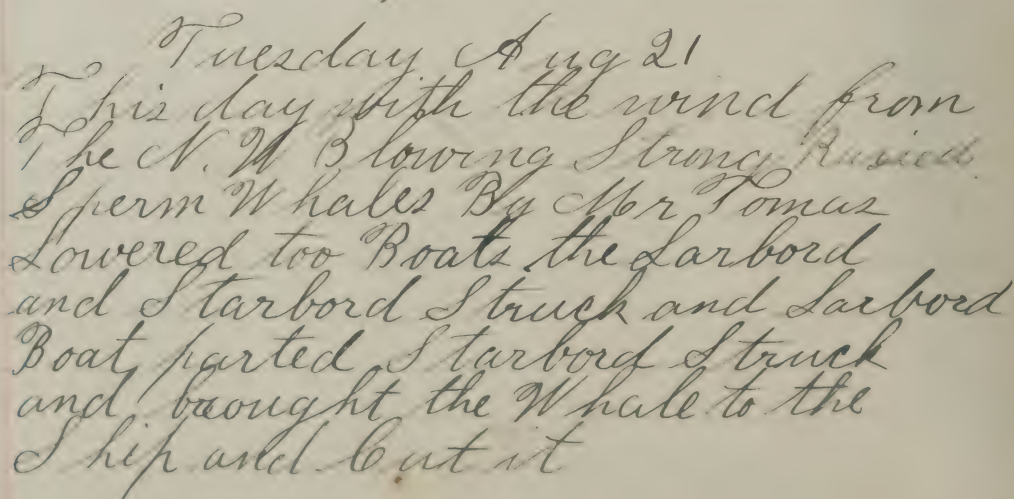 Tuesday Aug 21
This day with the wind from
The N. W Blowing Strong Raised
Sperm Whales By Mr Tomas
Lowered too Boats the Larbord
and Starbord Struck and Larbord
Boat parted Starbord Struck
and brought the Whale to the
Ship and Cut it